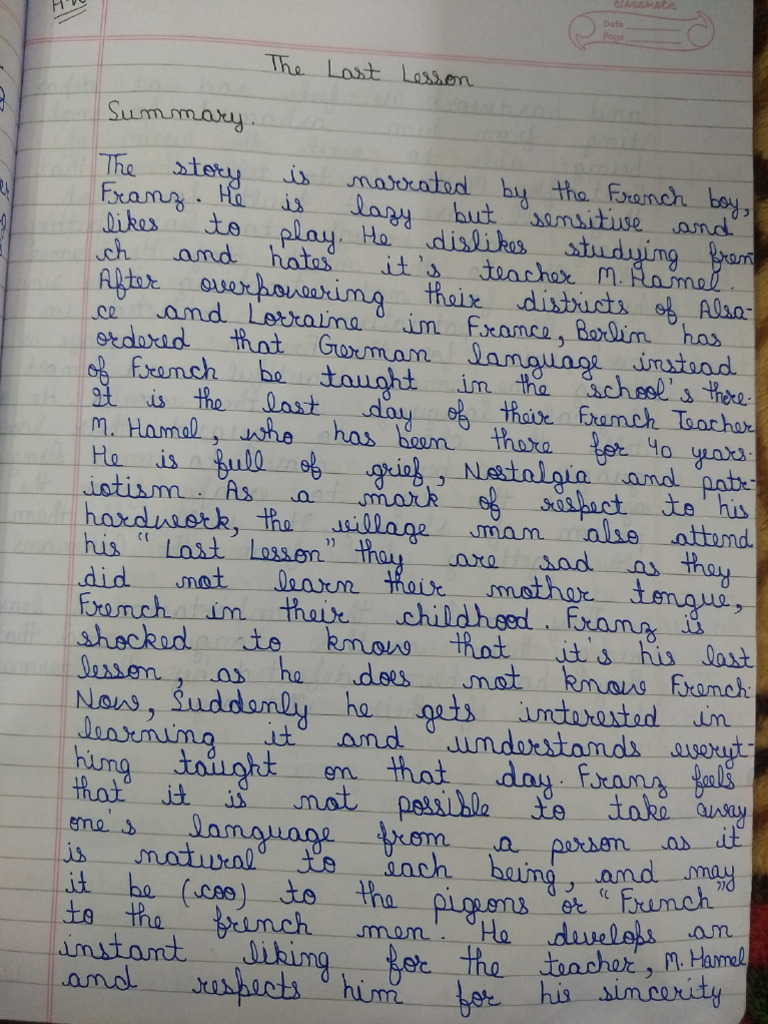 H.W
classmate
Date
Page
The Last Lesson
Summary.
The story is narrated by the French boy,
Franz. He is lazy but sensitive and
likes to play. He dislikes studying fren
ch and hates it's teacher M. Hamel.
After overpowering their districts of Alsa-
ce and Lorraine in France, Berlin has
ordered that German language instead
of French be taught in the school's there.
It is the last day of their French Teacher
M. Hamel, who has been there for 40 years.
He is full of grief, Nostalgia and patr-
iotism. As a mark of respect to his
hardwork, the village man also attend
his "Last Lesson" they are sad as they
did not learn their mother tongue,
French in their childhood. Franz is
shocked to know that it's his last
lesson, as he does not know French.
Now, Suddenly he gets interested in
learning it and understands everyt-
hing taught on that day. Franz feels
that it is not possible to take away
one's language from a person as it
is natural to each being, and may
it be (coo) to the pigeons or "French"
to the french men. He develops an
instant liking for the teacher, M. Hamel
and respects him for his sincerity